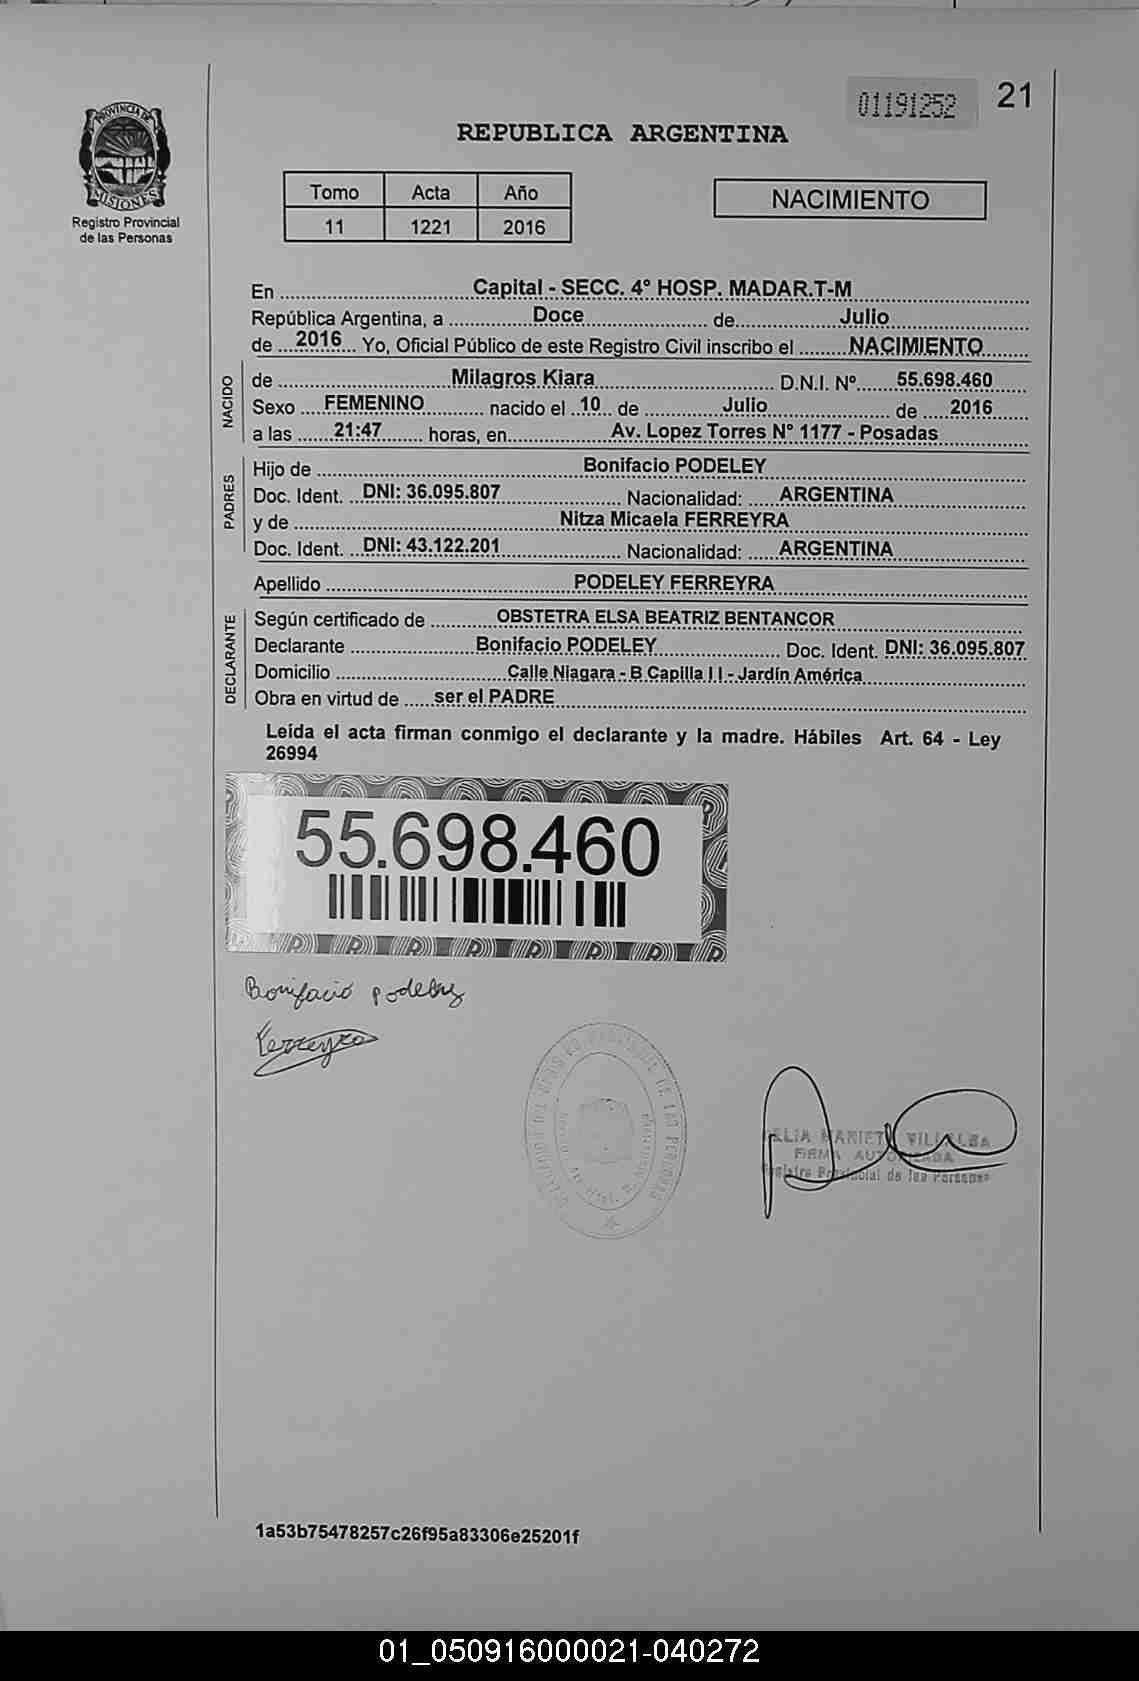 01191252 21
REPUBLICA ARGENTINA
PROVINCIA DE
MISIONES
Registro Provincial
de las Personas
Tomo Acta Año
11 1221 2016
NACIMIENTO
En Capital - SECC. 4° HOSP. MADAR.T-M
República Argentina, a Doce de Julio
de 2016 Yo, Oficial Público de este Registro Civil inscribo el NACIMIENTO
NACIDO
de Milagros Kiara D.N.I. Nº 55.698.460
Sexo FEMENINO nacido el 10 de Julio de 2016
a las 21:47 horas, en Av. Lopez Torres N° 1177 - Posadas
PADRES
Hijo de Bonifacio PODELEY
Doc. Ident. DNI: 36.095.807 Nacionalidad: ARGENTINA
y de Nitza Micaela FERREYRA
Doc. Ident. DNI: 43.122.201 Nacionalidad: ARGENTINA
Apellido PODELEY FERREYRA
DECLARANTE
Según certificado de OBSTETRA ELSA BEATRIZ BENTANCOR
Declarante Bonifacio PODELEY Doc. Ident. DNI: 36.095.807
Domicilio Calle Niagara - B Capilla I I - Jardín América
Obra en virtud de ser el PADRE
Leída el acta firman conmigo el declarante y la madre. Hábiles Art. 64 - Ley
26994
55.698.460
Bonifacio Podeley
Ferreyra
VILLALBA
FIRMA AUTORIZADA
Registro Provincial de las Personas
1a53b75478257c26f95a83306e25201f
01_050916000021-040272